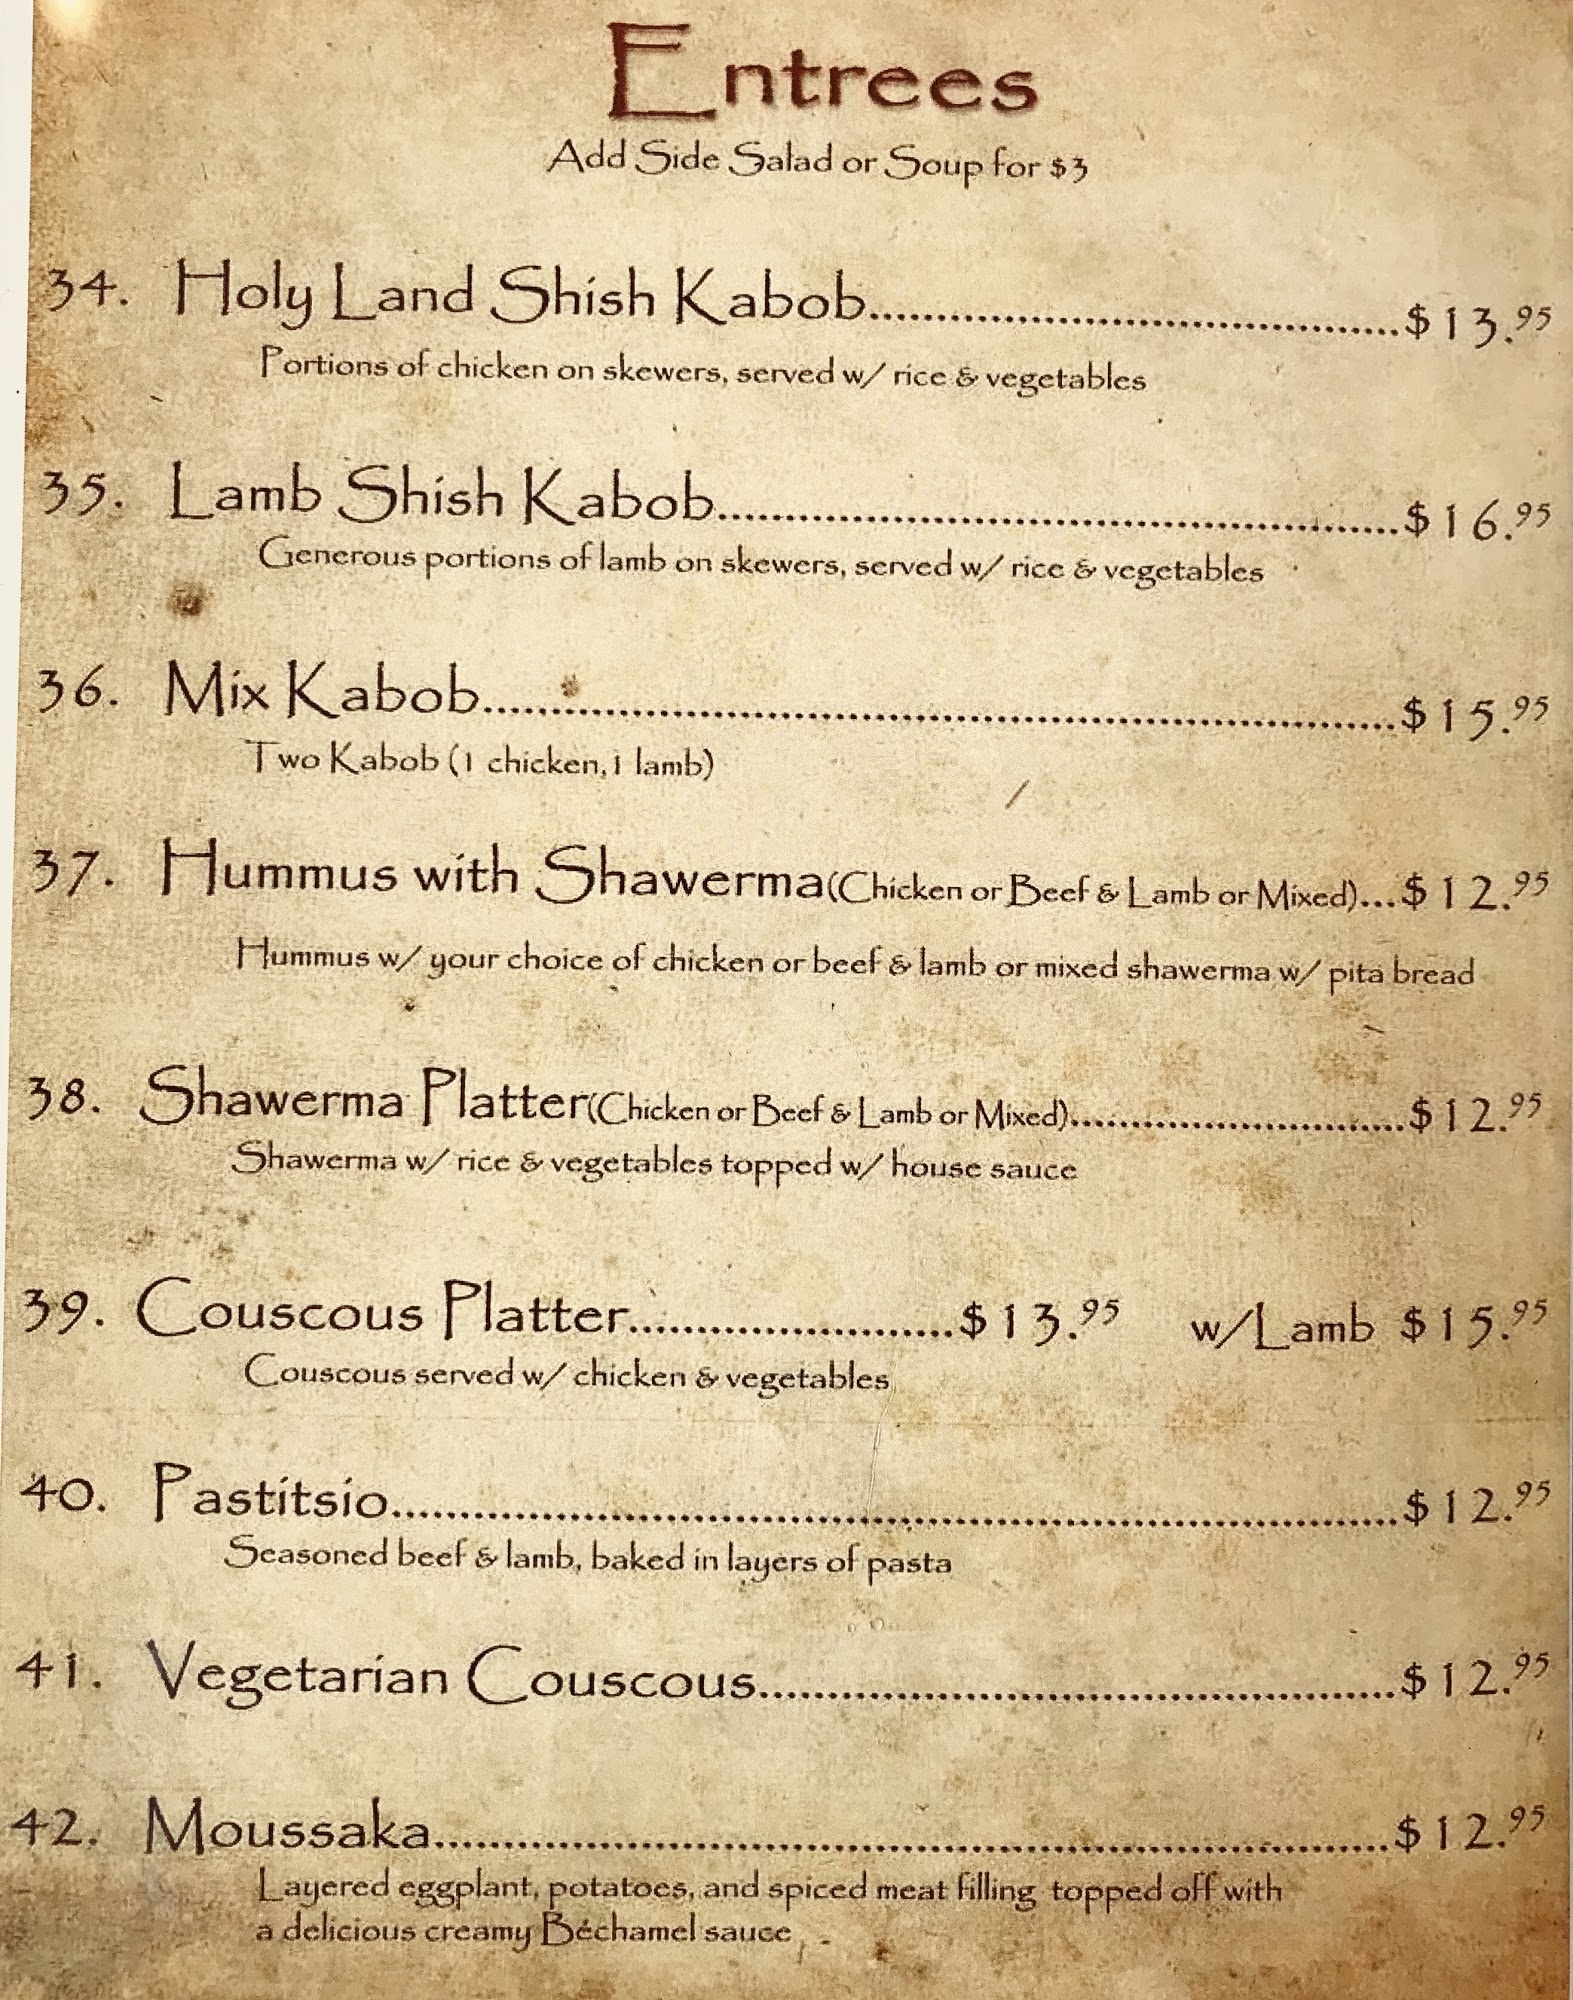 Entrees
Add Side Salad or Soup for $3
34. Holy Land Shish Kabob........................................$13.95
Portions of chicken on skewers, served w/ rice & vegetables
35. Lamb Shish Kabob..................................................$16.95
Generous portions of lamb on skewers, served w/ rice & vegetables
36. Mix Kabob....................................................................$15.95
Two Kabob (1 chicken,1 lamb)
37. Hummus with Shawerma(Chicken or Beef & Lamb or Mixed)...$12.95
Hummus w/ your choice of chicken or beef & lamb or mixed shawerma w/ pita bread
38. Shawerma Platter(Chicken or Beef & Lamb or Mixed).........................$12.95
Shawerma w/ rice & vegetables topped w/ house sauce
39. Couscous Platter........................$13.95 w/Lamb $15.95
Couscous served w/ chicken & vegetables
40. Pastitsio...........................................................................$12.95
Seasoned beef & lamb, baked in layers of pasta
41. Vegetarian Couscous...............................................$12.95
42. Moussaka......................................................................$12.95
Layered eggplant, potatoes, and spiced meat filling topped off with
a delicious creamy Béchamel sauce